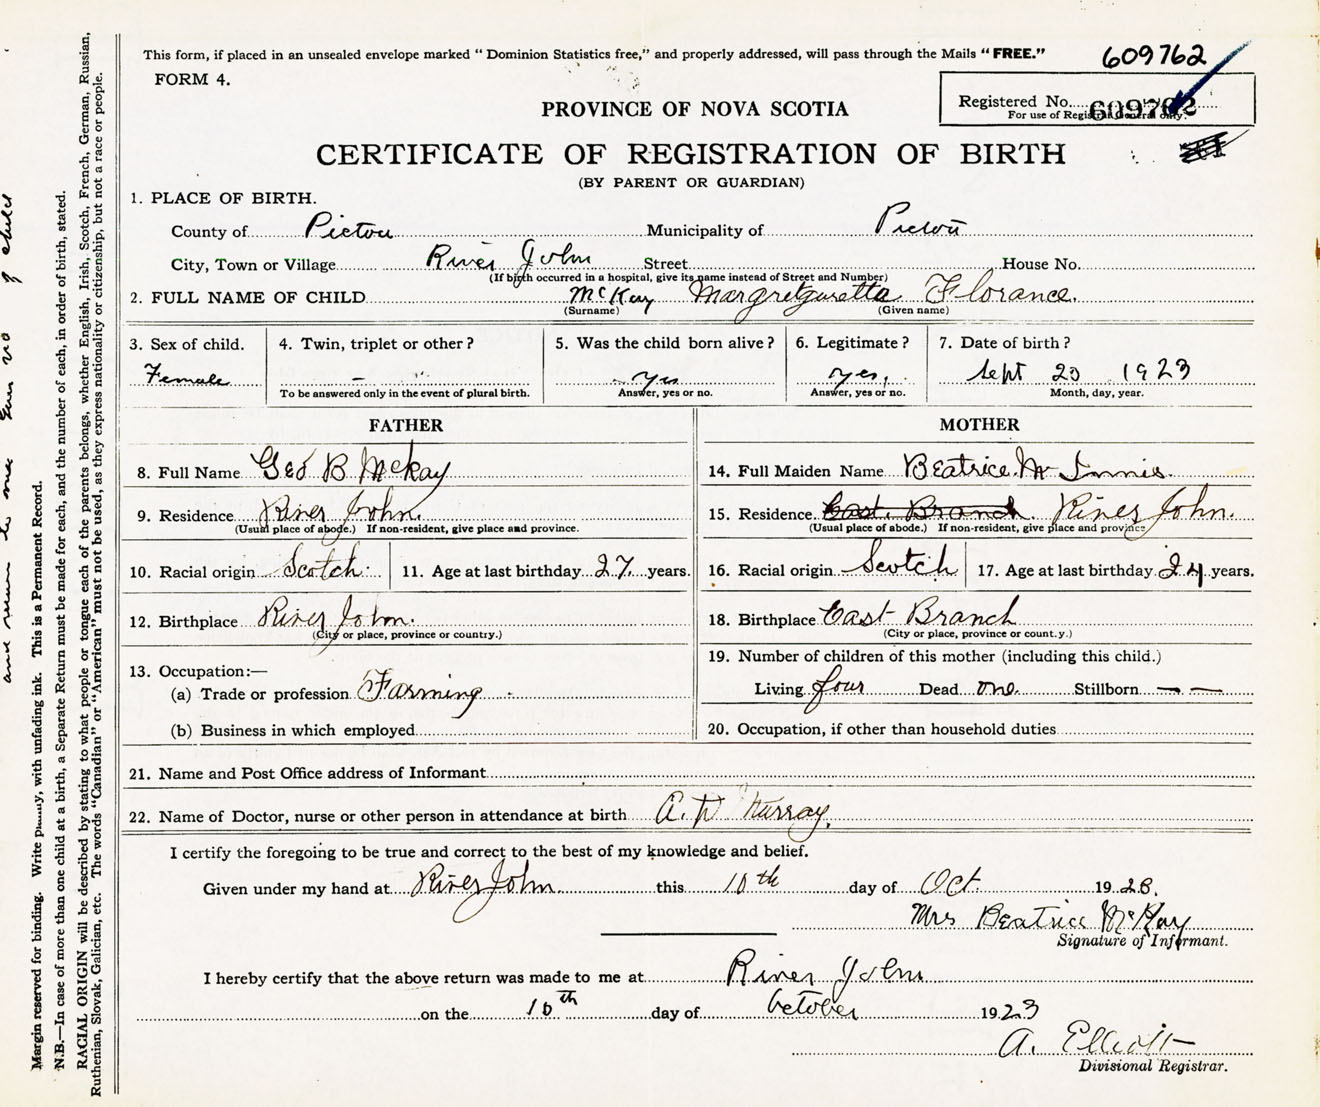 This form, if placed in an unsealed envelope marked "Dominion Statistics free," and properly addressed, will pass through the Mails "FREE."
609762
FORM 4.
Registered No. 609762
For use of Registrar General only.
PROVINCE OF NOVA SCOTIA
CERTIFICATE OF REGISTRATION OF BIRTH
(BY PARENT OR GUARDIAN)
1. PLACE OF BIRTH.
County of Pictou Municipality of Pictou
City, Town or Village River John Street House No.
(If birth occurred in a hospital, give its name instead of Street and Number)
2. FULL NAME OF CHILD McKay Margretguretta Florance.
(Surname) (Given name)
3. Sex of child. 4. Twin, triplet or other? 5. Was the child born alive? 6. Legitimate? 7. Date of birth?
Female - yes yes, Sept 23 1923
To be answered only in the event of plural birth. Answer, yes or no. Answer, yes or no. Month, day, year.
FATHER
8. Full Name Geo B McKay
9. Residence River John.
(Usual place of abode.) If non-resident, give place and province.
10. Racial origin Scotch. 11. Age at last birthday 27 years.
12. Birthplace River John.
(City or place, province or country.)
13. Occupation:—
(a) Trade or profession Farming
(b) Business in which employed
MOTHER
14. Full Maiden Name Beatrice Mc Innis.
15. Residence East Branch River John.
(Usual place of abode.) If non-resident, give place and province
16. Racial origin Scotch 17. Age at last birthday 24 years.
18. Birthplace East Branch
(City or place, province or count.y.)
19. Number of children of this mother (including this child.)
Living four Dead one. Stillborn — —
20. Occupation, if other than household duties
21. Name and Post Office address of Informant
22. Name of Doctor, nurse or other person in attendance at birth A. D Murray.
I certify the foregoing to be true and correct to the best of my knowledge and belief.
Given under my hand at River John this 10th day of Oct. 1923.
Mrs Beatrice McKay
Signature of Informant.
I hereby certify that the above return was made to me at River John
on the 10th day of October 1923
A. Elliott
Divisional Registrar.
Margin reserved for binding. Write plainly, with unfading ink. This is a Permanent Record.
N.B.—In case of more than one child at a birth, a Separate Return must be made for each, and the number of each, in order of birth, stated.
RACIAL ORIGIN will be described by stating to what people or tongue each of the parents belongs, whether English, Irish, Scotch, French, German, Russian,
Ruthenian, Slovak, Galician, etc. The words "Canadian" or "American" must not be used, as they express nationality or citizenship, but not a race or people.
of child